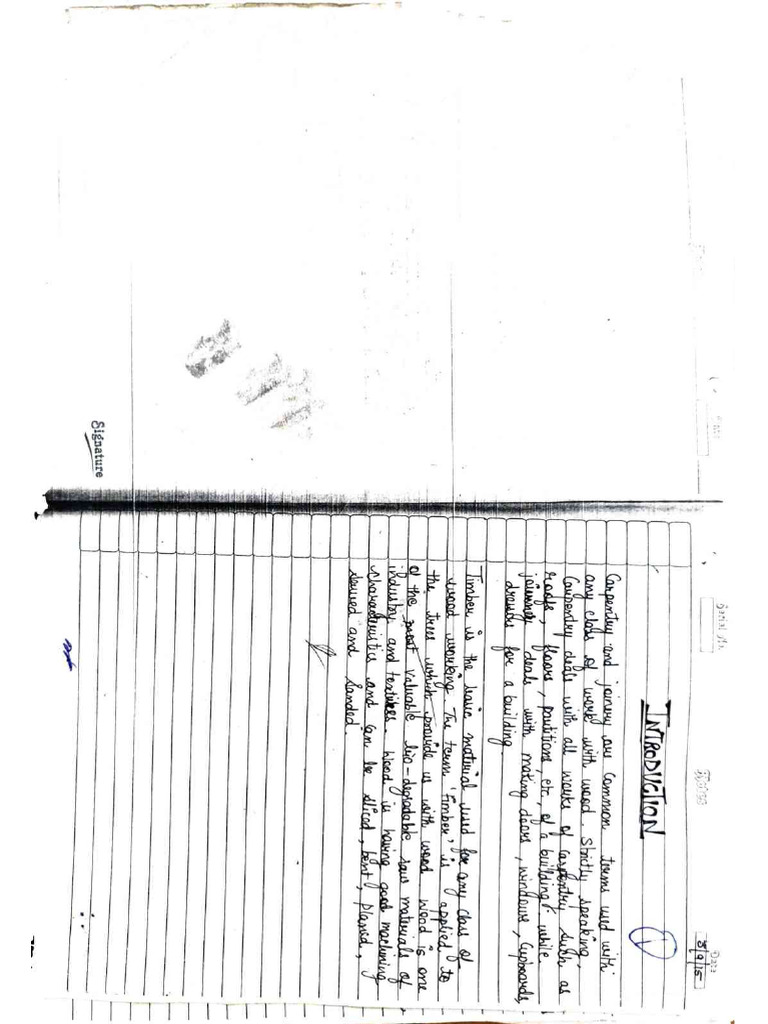 Date 3/9/15
INTRODUCTION
1
Carpentry and joinery are common terms used with
any class of work with wood. Strictly speaking,
Carpentry deals with all works of carpentry such as
roofs, floors, partitions, etc, of a building. while
joinery deals with making doors, windows, Cupboards,
for a building.
Timber is the basic material used for any class of
wood working. The term 'Timber', is applied to
the trees which provide us with wood. Wood is one
of the most valuable bio-degradable raw materials of
industry and textiles. Wood is having good machining
characteristics and can be sliced, bent, planed,
and Sanded.
Signature